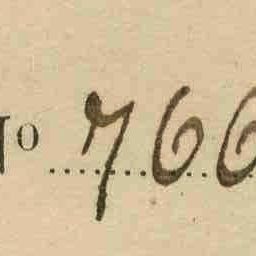 No 766